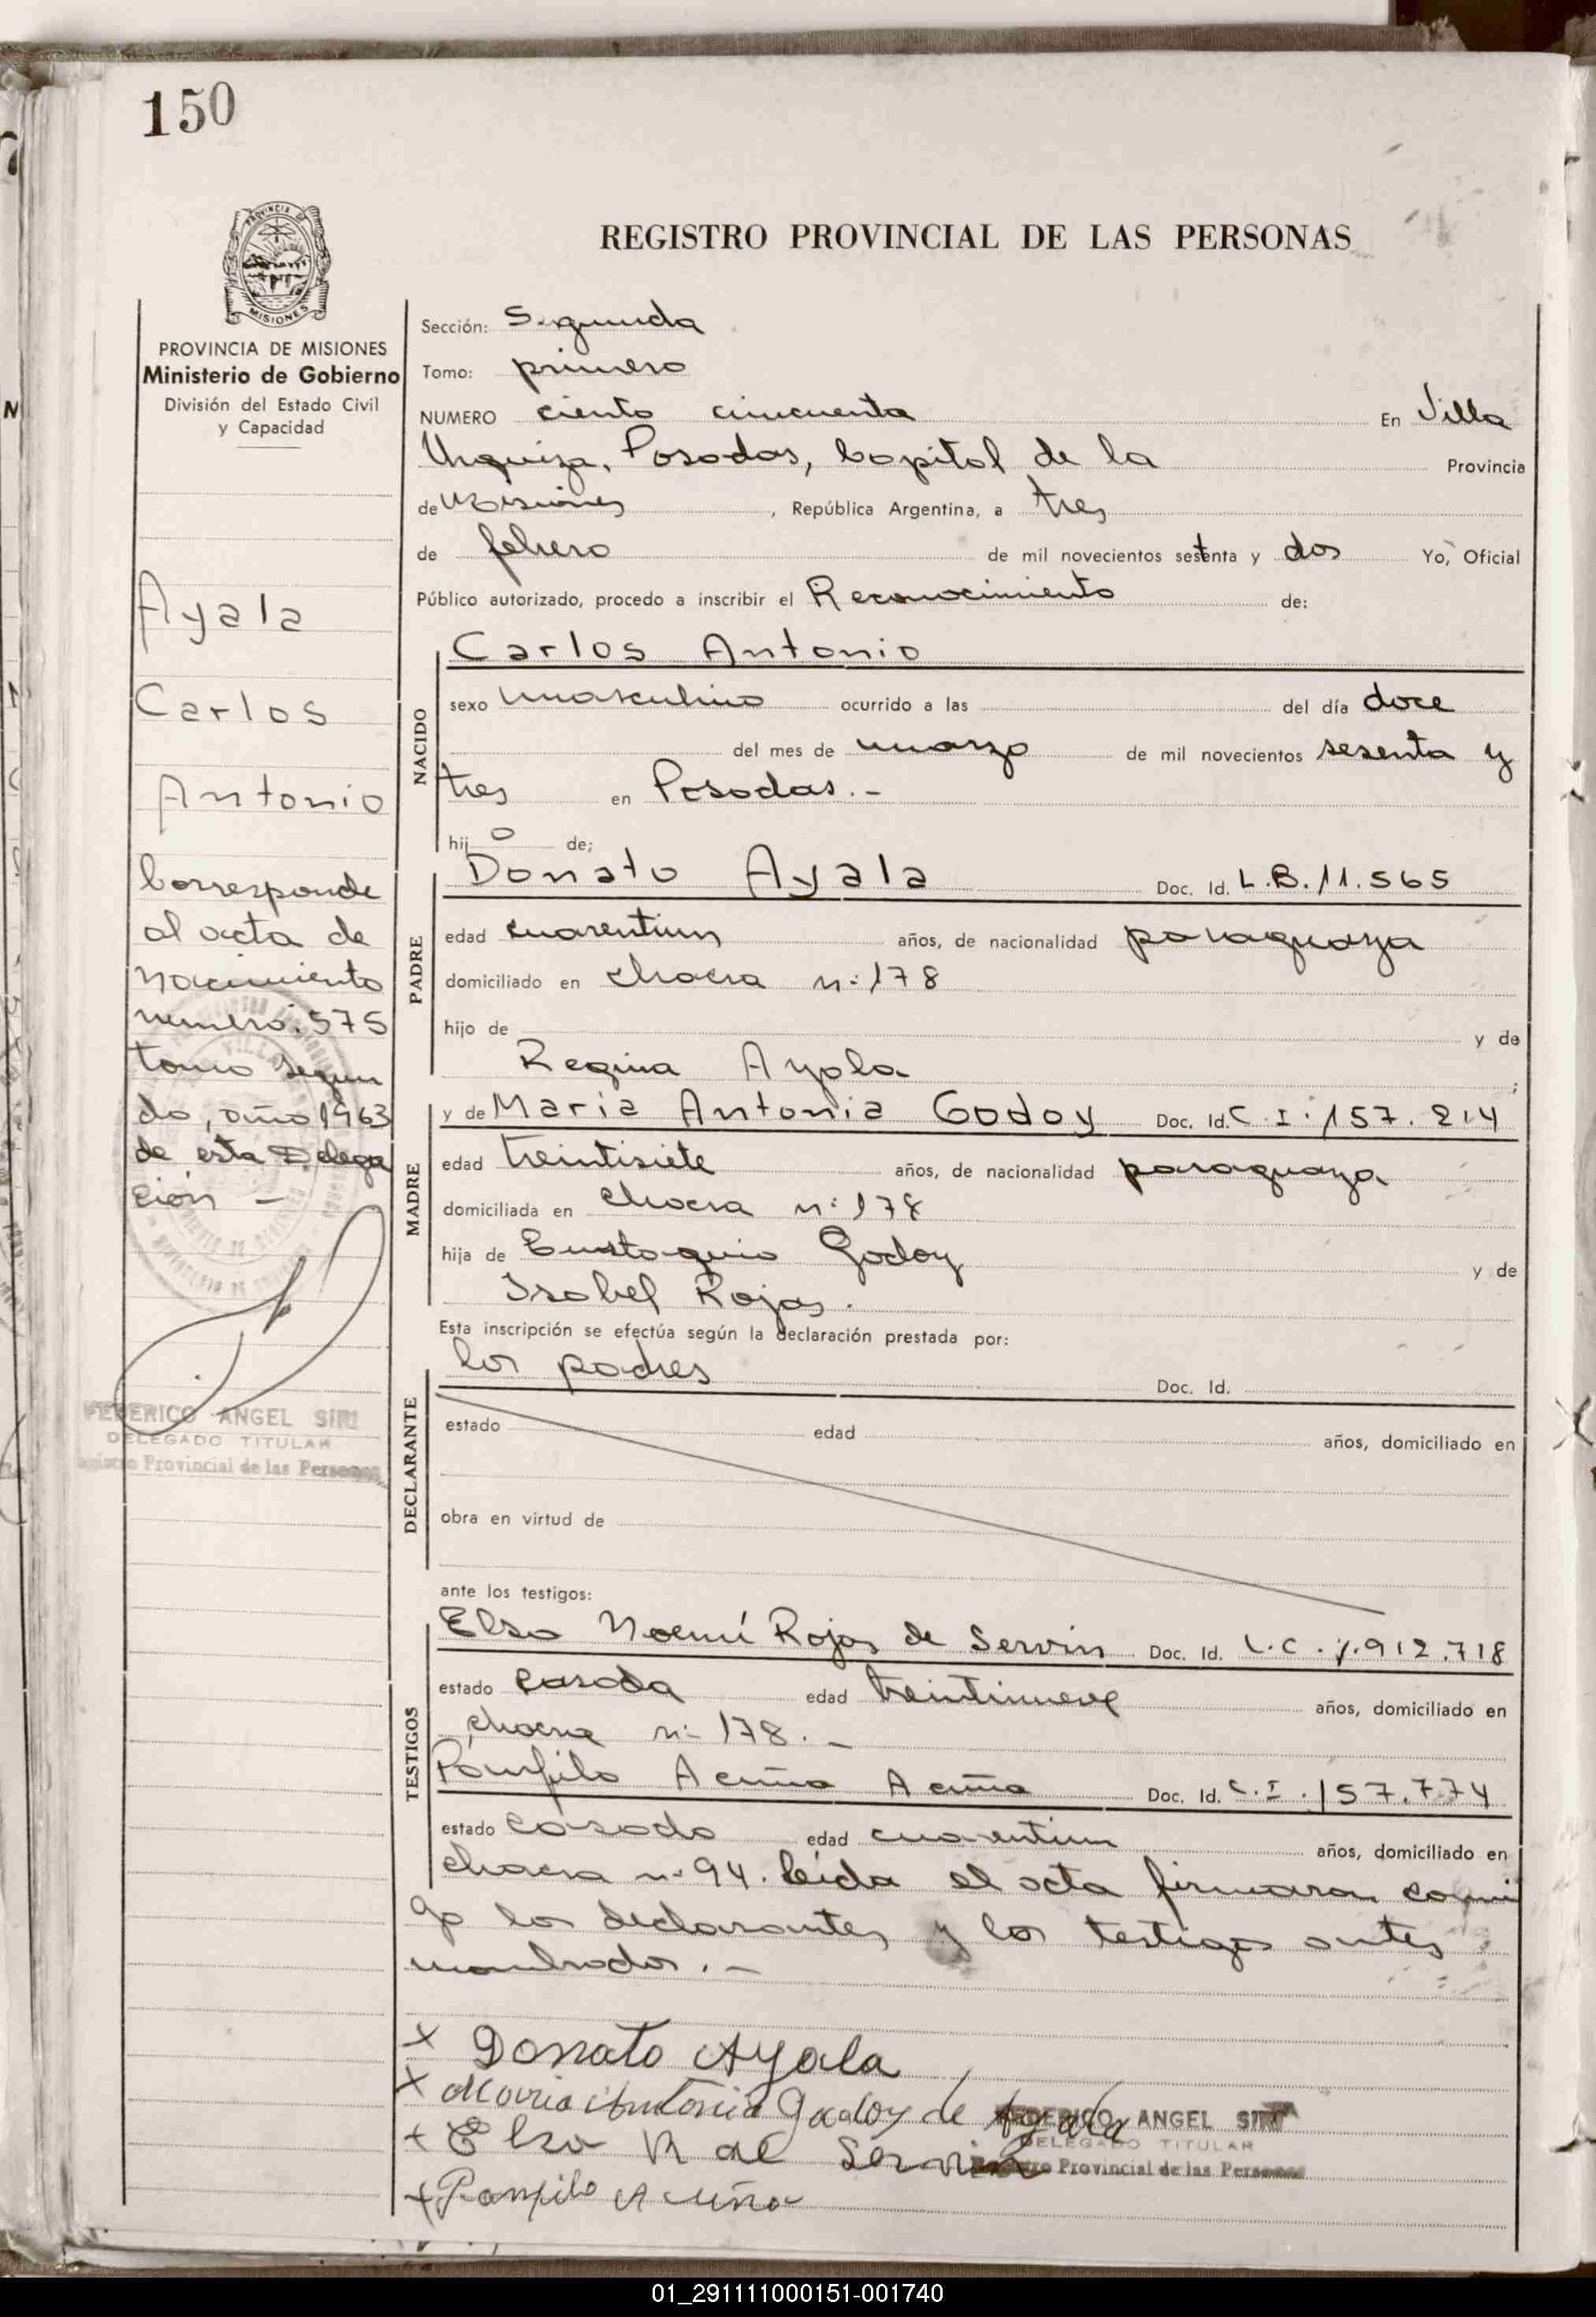 150
PROVINCIA DE
MISIONES
PROVINCIA DE MISIONES
Ministerio de Gobierno
División del Estado Civil
y Capacidad
Ayala
Carlos
Antonio
Corresponde
al acta de
nacimiento
numero. 575
tomo segun
do, año 1963
de esta Delega
ción -
FEDERICO ANGEL SIRI
DELEGADO TITULAR
Provincial de las Personas
REGISTRO PROVINCIAL DE LAS PERSONAS
Sección: Segunda
Tomo: primero
NUMERO ciento cincuenta En Villa
Urquiza, Posadas, Capital de la Provincia
de Misiones, República Argentina, a tres
de febrero de mil novecientos setenta y dos Yo, Oficial
Público autorizado, procedo a inscribir el Reconocimiento de:
NACIDO
Carlos Antonio
sexo masculino ocurrido a las del día doce
del mes de marzo de mil novecientos sesenta y
tres en Posadas.-
hijo de;
PADRE
Donato Ayala Doc. Id. L.B.11.565
edad cuarentiun años, de nacionalidad paraguaya
domiciliado en chacra n: 178
hijo de y de
Regina Ayala ;
MADRE
y de Maria Antonia Godoy Doc. Id. C.I. 157.214
edad treintisiete años, de nacionalidad paraguaya
domiciliada en chacra n: 178
hija de Eustaquio Godoy y de
Isabel Rojas.
Esta inscripción se efectúa según la declaración prestada por:
DECLARANTE
los padres Doc. Id.
estado edad años, domiciliado en
obra en virtud de
ante los testigos:
TESTIGOS
Elsa Noemí Rojas de Servin Doc. Id. L.C. 912.718
estado casada edad treintinueve años, domiciliado en
chacra n: 178.-
Pánfilo Acuña Acuña Doc. Id. C.I. 157.774
estado casado edad cuarentiun años, domiciliado en
chacra n: 94. Leida el acta firmaron conmi
go los declarantes y los testigos antes
nombrados.-
x Donato Ayala
x Maria Antonia Godoy de Ayala
+ Elsa R de Servin
+ Panfilo Acuña
FEDERICO ANGEL SIRI
DELEGADO TITULAR
Provincial de las Personas
01_291111000151-001740